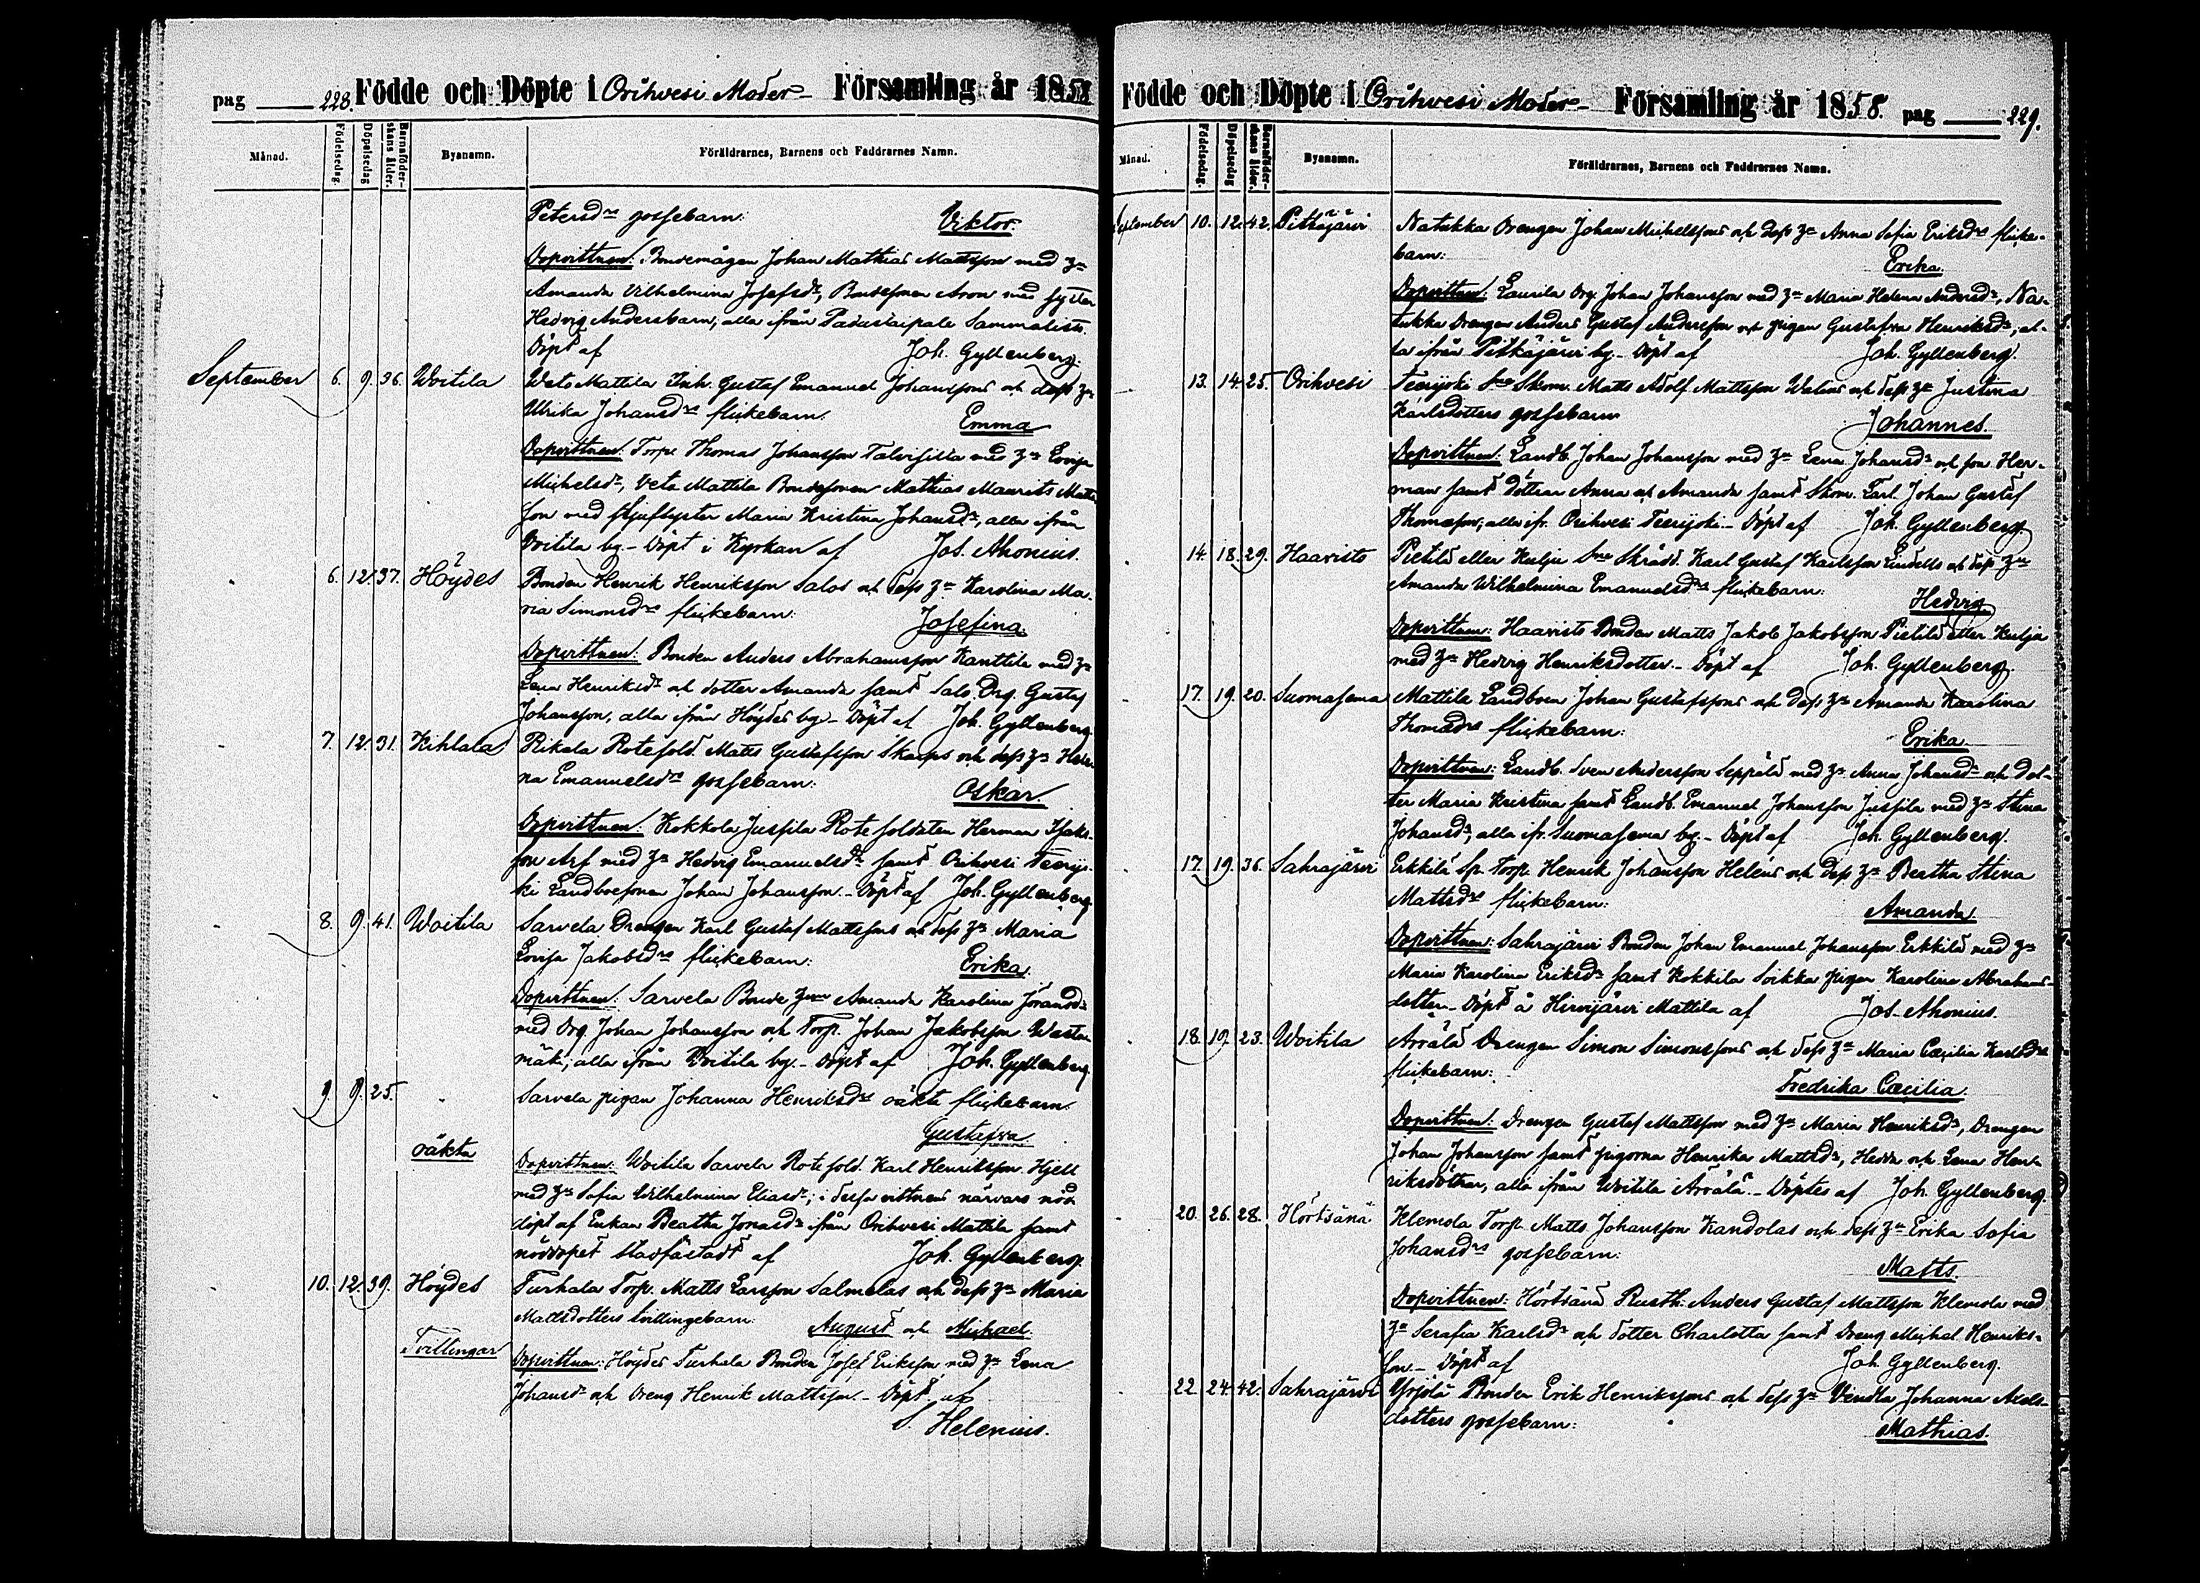 pag 228. Födde och Döpte i Orihvesi Moder- Församling år 1858
Månad. Födelsedag. Döpelsedag Barnaföderskans ålder. Byanamn. Föräldrarnes, Barnens och Faddrarnes Namn.
Petersdrs gossebarn: Viktor.
Dopvittnen: Bondemågen Johan Mathias Mattsson med Hu
Amanda Vilhelmina Josefsdr, Bondesonen Aron med syster
Hedvig Andersbarn, alla ifrån
Döpt af Joh. Gyllenberg.
September 6. 9. 36. Woitila Mattila Inh. Gustaf Emanuel Johanssons och dess Hu
Ulrika Johansdrs flickebarn. Emma
Dopvittnen: Torp. Thomas Johansson med Hu Lovisa
Michelsdr, Veto Mattila Bondesonen Mathias Maurits Matts-
son med Maria Kristina Johansdr, alla ifrån
Voitila by.- Döpt i Kyrkan af Jos. Ahonius.
6. 12. 37. Höydes Bonden Henrik Henriksson Salos och dess Hu Karolina Ma-
ria Simonsdrs flickebarn: Josefina.
Dopvittnen: Bonden Anders Abrahamsson Kanttila med Hu
Lena Henriksdr och dotter Amanda samt Salo Drg. Gustaf
Johansson, alla ifrån Höydes by- Döpt af Joh. Gyllenberg.
7. 12. 31. Kihlala Rikala Rotesold. Matts Gustafsson Skarps och dess Hu Hele-
na Emanuelsdrs gossebarn: Oskar.
Dopvittnen: Kokkola Jussila Rotesoldaten Herman Isaks-
son Arf med Hu Hedvig Emanuelsdr samt Orihvesi Teerijo-
ki Landboesonen Johan Johansson.- Döpt af Joh. Gyllenberg
8. 9. 41. Woitila Sarvela Drengen Karl Gustaf Mattssons och dess Hu Maria
Lovisa Jakobsdrs flickebarn: Erika.
Dopvittnen: Sarvela Bonde Amanda Karolina Jöransdr
med Drg. Johan Johansson och Torp. Johan Jakobsson Wasten-
mäk; alla ifrån Voitila by.- Döpt af Joh. Gyllenberg.
9. 9. 25. Sarvela pigan Johanna Henriksdrs oäkta flickebarn.
Gustafva
oäkta Dopvittnen: Woitila Sarvela Rotesold. Karl Henriksson Hjelt
med Hu Sofia Wilhelmina Eliasdr; i dessa vittnens närvaro nöd-
döpt af Enkan Beatha Jonasdr ifrån Orihvesi Mattila samt
nöddopet stadfästadt af Joh. Gyllenberg.
10. 12. 39. Höydes Turhala Torp. Matts Larsson Salmelas och dess Hu Maria
Mattsdotters tvillingebarn: August och Michael.
Tvillingar Dopvittnen: Höydes Turhala Bonden Josef Eriksson med Hu Lena
Johansdr och Dreng Henrik Mattsson.- Döpt af
S. Helenius.
Födde och Döpte i Orihvesi Moder- Församling år 1858. pag 229.
Månad. Födelsedag. Döpelsedag Barnaföderskans ålder. Byanamn. Föräldrarnes, Barnens och Faddrarnes Namn.
September 10. 12. 42. Pitkäjärvi Natukka Drengen Johan Michelssons och dess Hu Anna Sofia Eriksdrs flicke-
barn: Erika.
Dopvittnen: Laurila Drg. Johan Johansson med Hu Maria Helena Andersdr, Na-
tukka Drengen Anders Gustaf Andersson och pigan Gustafva Henriksdr, al-
la ifrån Pitkäjärvi by.- Döpt af Joh. Gyllenberg.
13. 14. 25. Orihvesi Teerijoki Skom. Matts Adolf Mattsson och dess Hu Justina
Karlsdotters gossebarn Johannes.
Dopvittnen: Landb. Johan Johansson med Hu Lena Johansdr och son Her-
man samt döttrar Anna och Amanda samt Skom. Lärl. Johan Gustaf
Thomasson; alla ifr. Orihvesi Teerijoki.- Döpt af Joh. Gyllenberg.
14. 18. 29. Haavisto Pietilä eller Kulju Skrädd. Karl Gustaf Karlsson Lindells och dess Hu
Amanda Wilhelmina Emanuelsdrs flickebarn: Hedvig.
Dopvittnen: Haavisto Bonden Matts Jakob Jakobsson Pietilä eller Kulju
med Hu Hedvig Henriksdotter.- Döpt af Joh. Gyllenberg.
17. 19. 20. Suomasema Mattila Landboen Johan Gustafssons och dess Hu Amanda Karolina
Thomasdrs flickebarn: Erika
Dopvittnen: Landb. Sven Andersson Seppälä med Hu Anna Johansdr och dot-
ter Maria Kristina samt Landb. Emanuel Johansson Jussila med Hu Stina
Johansdr, alla ifr. Suomasema by.- Döpt af Joh. Gyllenberg.
17. 19. 36. Sahrajärvi Erkkilä Torp. Henrik Johansson Heléns och dess Hu Beatha Stina
Mattsdrs flickebarn: Amanda
Dopvittnen: Sahrajärvi Bonden Johan Emanuel Johansson Erkkilä med Hu
Maria Karolina Eriksdr samt Kokkila Soikka pigan Karolina Abrahams-
dotter.- Döpt å Hirvijärvi Mattila af Jos. Ahonius.
18. 19. 23. Woitila Arrälä Drengen Simon Simonssons och dess Hu Maria Cæcilia Karlsdrs
flickebarn: Fredrika Cæcilia.
Dopvittnen: Drengen Gustaf Mattsson med Hu Maria Henriksdr, Drengen
Johan Johansson samt pigorna Henrika Mattsdr, Hedda och Lena Hen-
riksdöttrar, alla ifrån Woitila Arrälä.- Döptes af Joh. Gyllenberg.
20. 26. 28. Hörtsänä Klemola Torp. Matts Johansson Kandolas och dess Hu Erika Sofia
Johansdrs gossebarn: Matts.
Dopvittnen: Hörtsänä Rusth. Anders Gustaf Mattsson Klemola med
Hu Serafia Karlsdr och dotter Charlotta samt Dreng Michel Henriks-
son.- Döpt af Joh. Gyllenberg.
22. 24. 42. Sahrajärvi Yrjölä Bonden Erik Henrikssons och dess Hu Vendla Johanna Axels-
dotters gossebarn: Mathias.